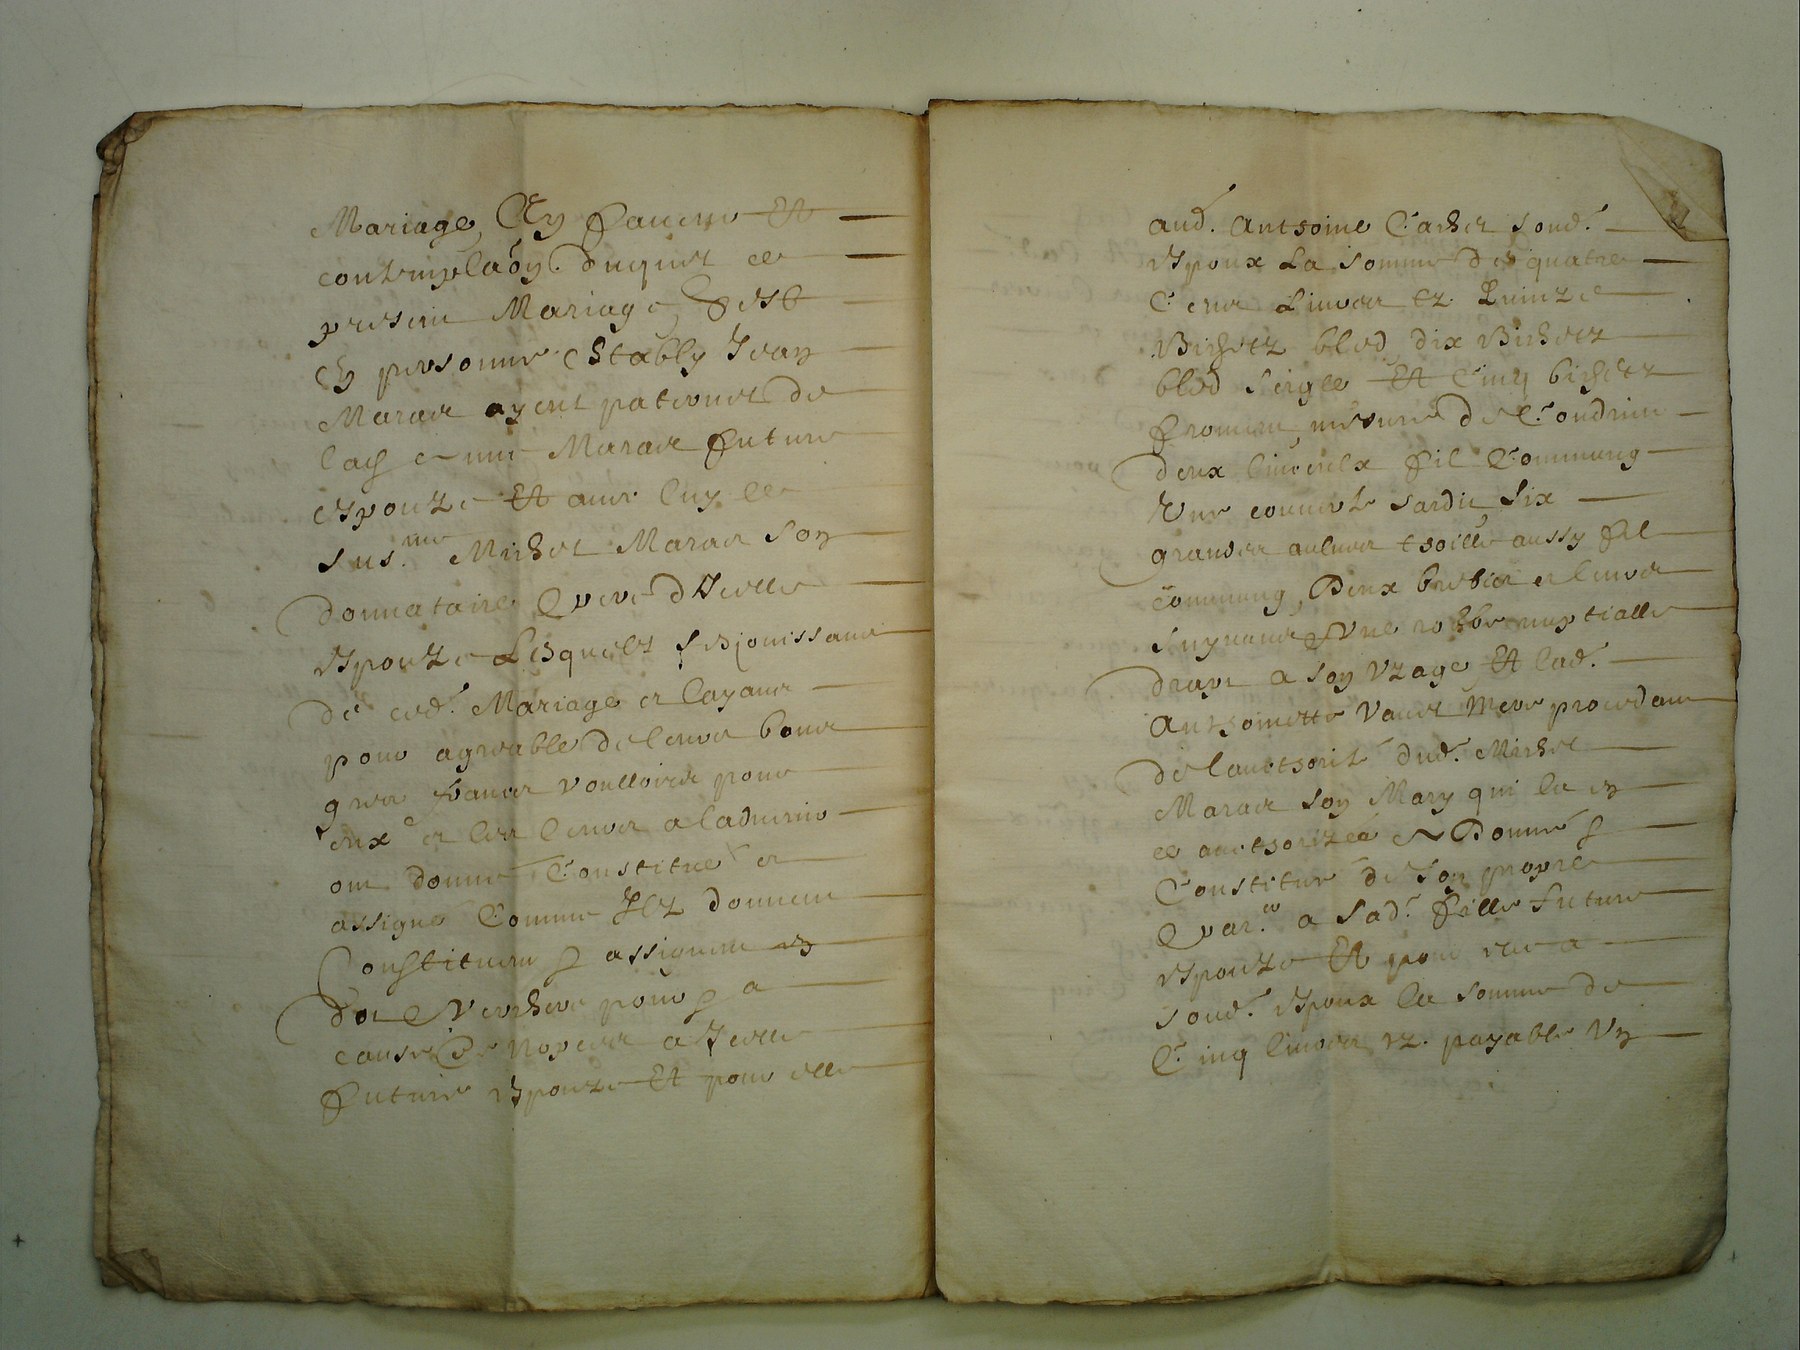 Mariage, En faveur Et
contemplaõn duquel ce
present Mariage, S'est
En personne Estably Jean
Maras ayeul paternel de
lad. Maras future
espouze Et avec luy le
sus.me Michel Maras son
donnataire & pere d'Icelle
Espouze Lesquels se Rejouissant
de ced. Mariage et layant
pour agreable de leurs bons
gres francs voulloirs pour
eux et les leurs a ladvenir
ont donné Constitué et
assigné Comme Ilz donnent
Constituent & assignent en
dot & verchere pour & a
cause De Nopces a Icelle
future Espouze Et pour elle
aud. Anthoine Carher sond.
Espoux La somme de quatre
Cens Livres tz. Quinze
Bichetz bled, dix Bichetz
bled seigle Et Cinq bichetz
froment, mesure de Condrieu
deux linceulx fil Commung
Une couverte Sardie six
grandes aulnes thoille aussy fil
commung, Deux brebis et leurs
suyvans & Une robbe nuptialle
drapt a son Uzage, Et lad.
Anthoinette Mere procedant
de laucthorité dud. Michel
Maras son Mary qui la en
ce aucthorizeé a Donné &
Constitué de son propre
a sad. fille future
espouze Et pour elle a
sond. Espoux la somme de
Cinq livres tz. payable Un